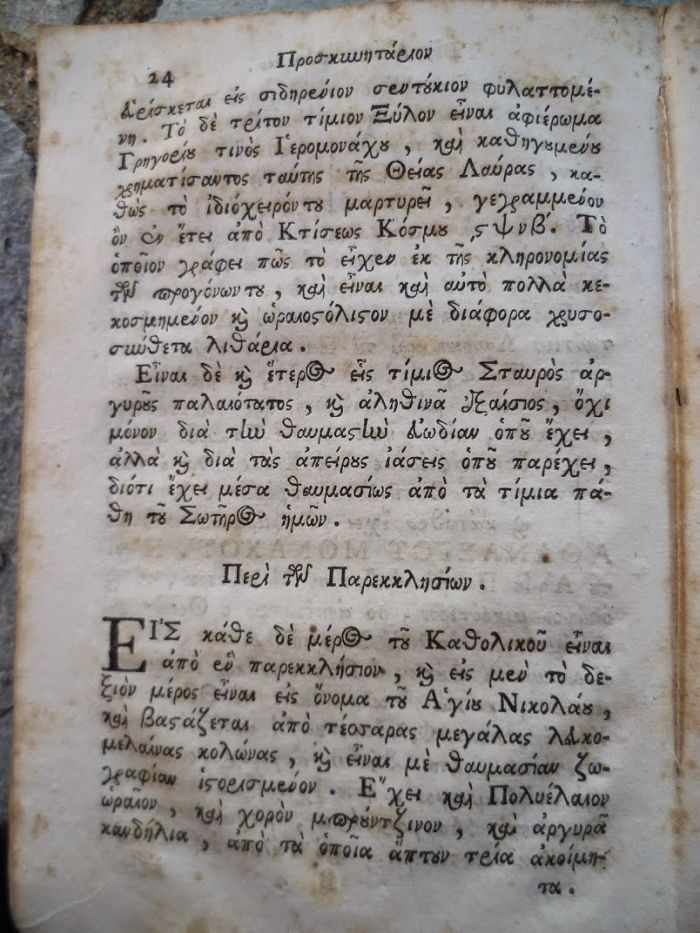 24
Προσκυνητάριον
εὑρίσκεται εἰς σιδηρένιον σεντούκιον φυλαττομέ-
νη. Τὸ δὲ τρίτον τίμιον Ξύλον εἶναι ἀφιέρωμα
Γρηγορίου τινὸς Ἱερομονάχου, καὶ καθηγουμένου
χρηματίσαντος ταύτης τῆς Θείας Λαύρας, κα-
θὼς τὸ ἰδιόχειρόν του μαρτυρεῖ, γεγραμμένον
ὂν ἐν ἔτει ἀπὸ Κτίσεως Κόσμου ςψνβʹ. Τὸ
ὁποῖον γράφει πῶς τὸ εἶχεν ἐκ τῆς κληρονομίας
τῶν προγόνων του, καὶ εἶναι καὶ αὐτὸ πολλὰ κε-
κοσμημένον καὶ ὡραιοστόλιστον μὲ διάφορα χρυσο-
σύνθετα λιθάρια.
Εἶναι δὲ καὶ ἕτερος εἷς τίμιος Σταυρὸς ἀρ-
γυροῦς παλαιότατος, καὶ ἀληθινὰ ἐξαίσιος, ὄχι
μόνον διὰ τὴν θαυμαστὴν εὐωδίαν ὁποῦ ἔχει,
ἀλλὰ καὶ διὰ τὰς ἀπείρους ἰάσεις ὁποῦ παρέχει,
διότι ἔχει μέσα θαυμασίως ἀπὸ τὰ τίμια πά-
θη τοῦ Σωτῆρος ἡμῶν.
Περὶ τῶν Παρεκκλησίων.
ΕΙΣ κάθε δὲ μέρος τοῦ Καθολικοῦ εἶναι
ἀπὸ ἓν παρεκκλήσιον, καὶ εἰς μὲν τὸ δε-
ξιὸν μέρος εἶναι εἰς ὄνομα τοῦ Ἁγίου Νικολάου,
καὶ βαστάζεται ἀπὸ τέσσαρας μεγάλας λευκο-
μελαίνας κολώνας, καὶ εἶναι μὲ θαυμασίαν ζω-
γραφίαν ἱστορισμένον. Ἔχει καὶ Πολυέλαιον
ὡραῖον, καὶ χορὸν μπρούντζινον, καὶ ἀργυρᾶ
κανδήλια, ἀπὸ τὰ ὁποῖα ἅπτουν τρία ἀκοίμη-
τα.